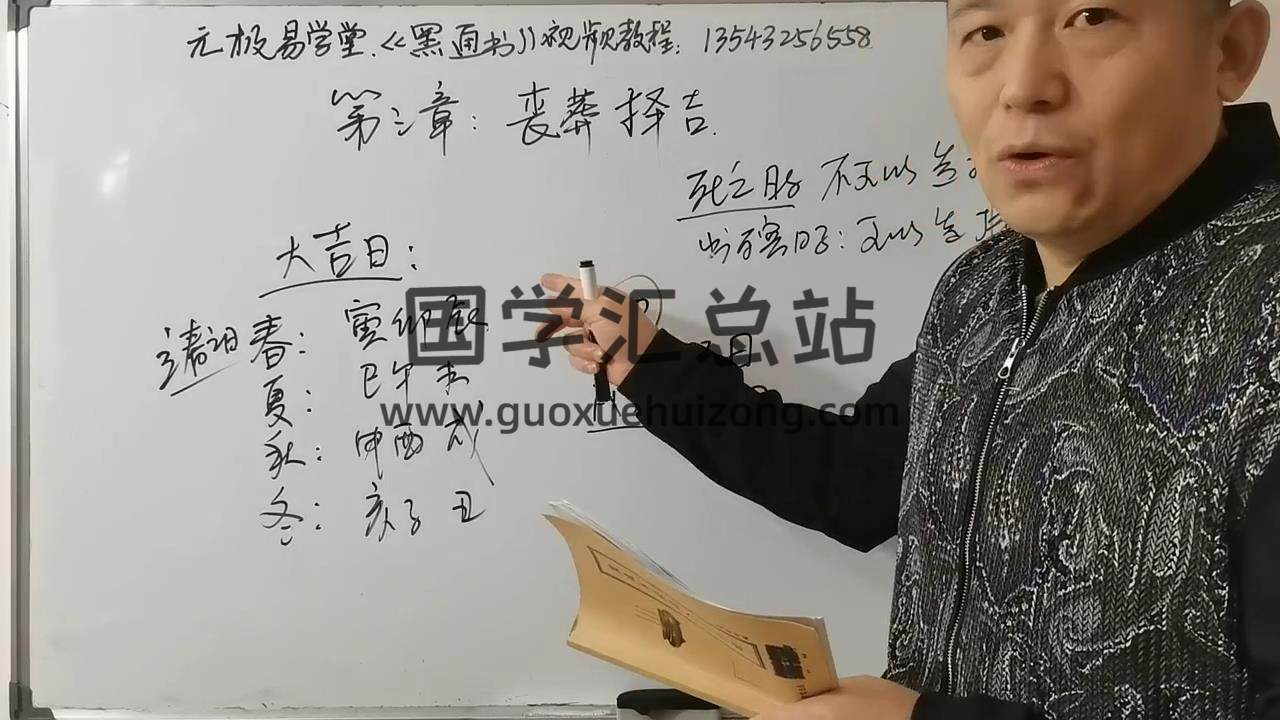 元极易学堂.《黑通书》视频教程: 13543256558
第三章: 丧葬择吉.
死亡日子 不可以
日子: 可以
大吉日:
清明 春: 寅卯辰
夏: 巳午未
秋: 申酉戌
冬: 亥子丑
国学汇总站
www.guoxuehuizong.com